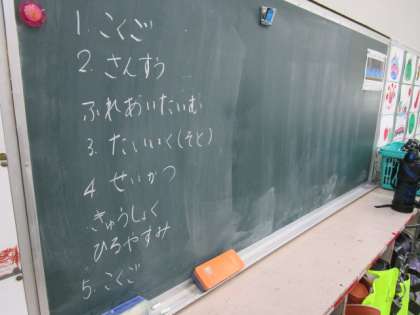 1. こくご
2. さんすう
ふれあいたいむ
3. たいいく(そと)
4 せいかつ
きゅうしょく
ひるやすみ
5. こくご